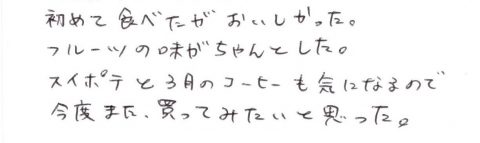 初めて食べたがおいしかった。
フルーツの味がちゃんとした。
スイポテと3月のコーヒーも気になるので
今度また、買ってみたいと思った。